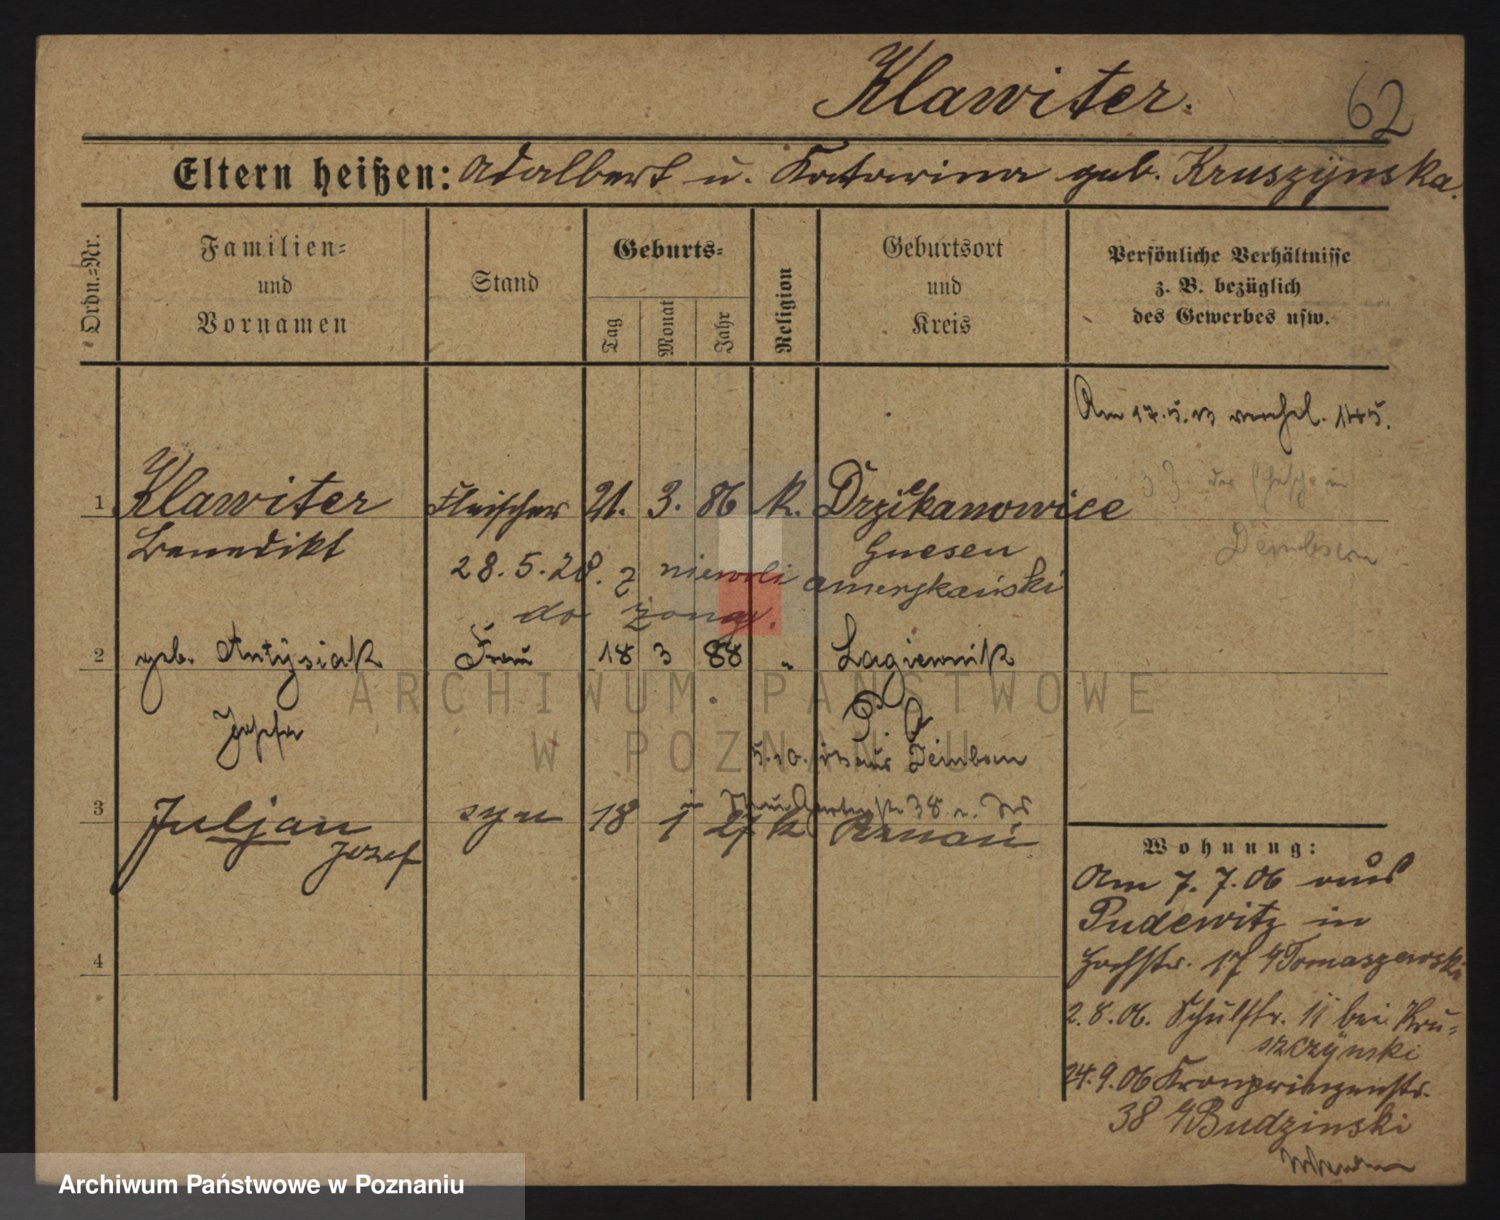 Klawiter.
62
Eltern heißen: Adalbert u. Katarina geb. Kruszynska.
Ordn.-Nr.
Familien-
und
Vornamen
Stand
Geburts-
Tag
Monat
Jahr
Religion
Geburtsort
und
Kreis
Persönliche Verhältnisse
z. B. bezüglich
des Gewerbes usw.
Am 17.5.13 verehel.
1 Klawiter Fleischer 21. 3. 86 k. Drziekanowice
Benedikt Gnesen
28.5.28. z niewoli amerykański
do żony.
2 geb. Antysiak Frau 18 3 88 " Lagiewnik
Josefa
5.10. aus Dembsen
3 Juljan syn 18 1 27 k Poznań
Jozef
4
ARCHIWUM PAŃSTWOWE
W POZNANIU
Wohnung:
Am 7.7.06 aus
Pudewitz in
Hochstr. 17 Tomaszewski
2.8.06. Schulstr. 11 bei Kru-
szczynski
24.9.06 Kronprinzenstr.
38 Budzinski
Archiwum Państwowe w Poznaniu